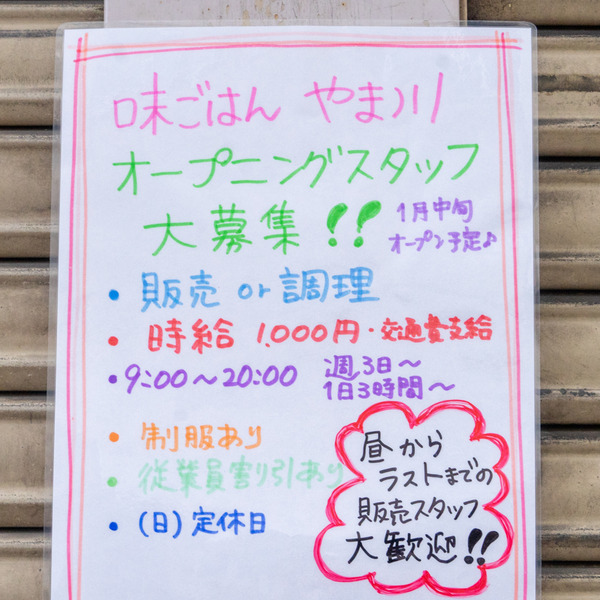 味ごはん やま川
オープニングスタッフ
大募集!!
1月中旬
オープン予定♪
・販売 or 調理
・時給 1,000円・交通費支給
・9:00～20:00
週3日～
1日3時間～
・制服あり
・従業員割り引あり
・(日)定休日
昼から
ラストまでの
販売スタッフ
大歓迎!!